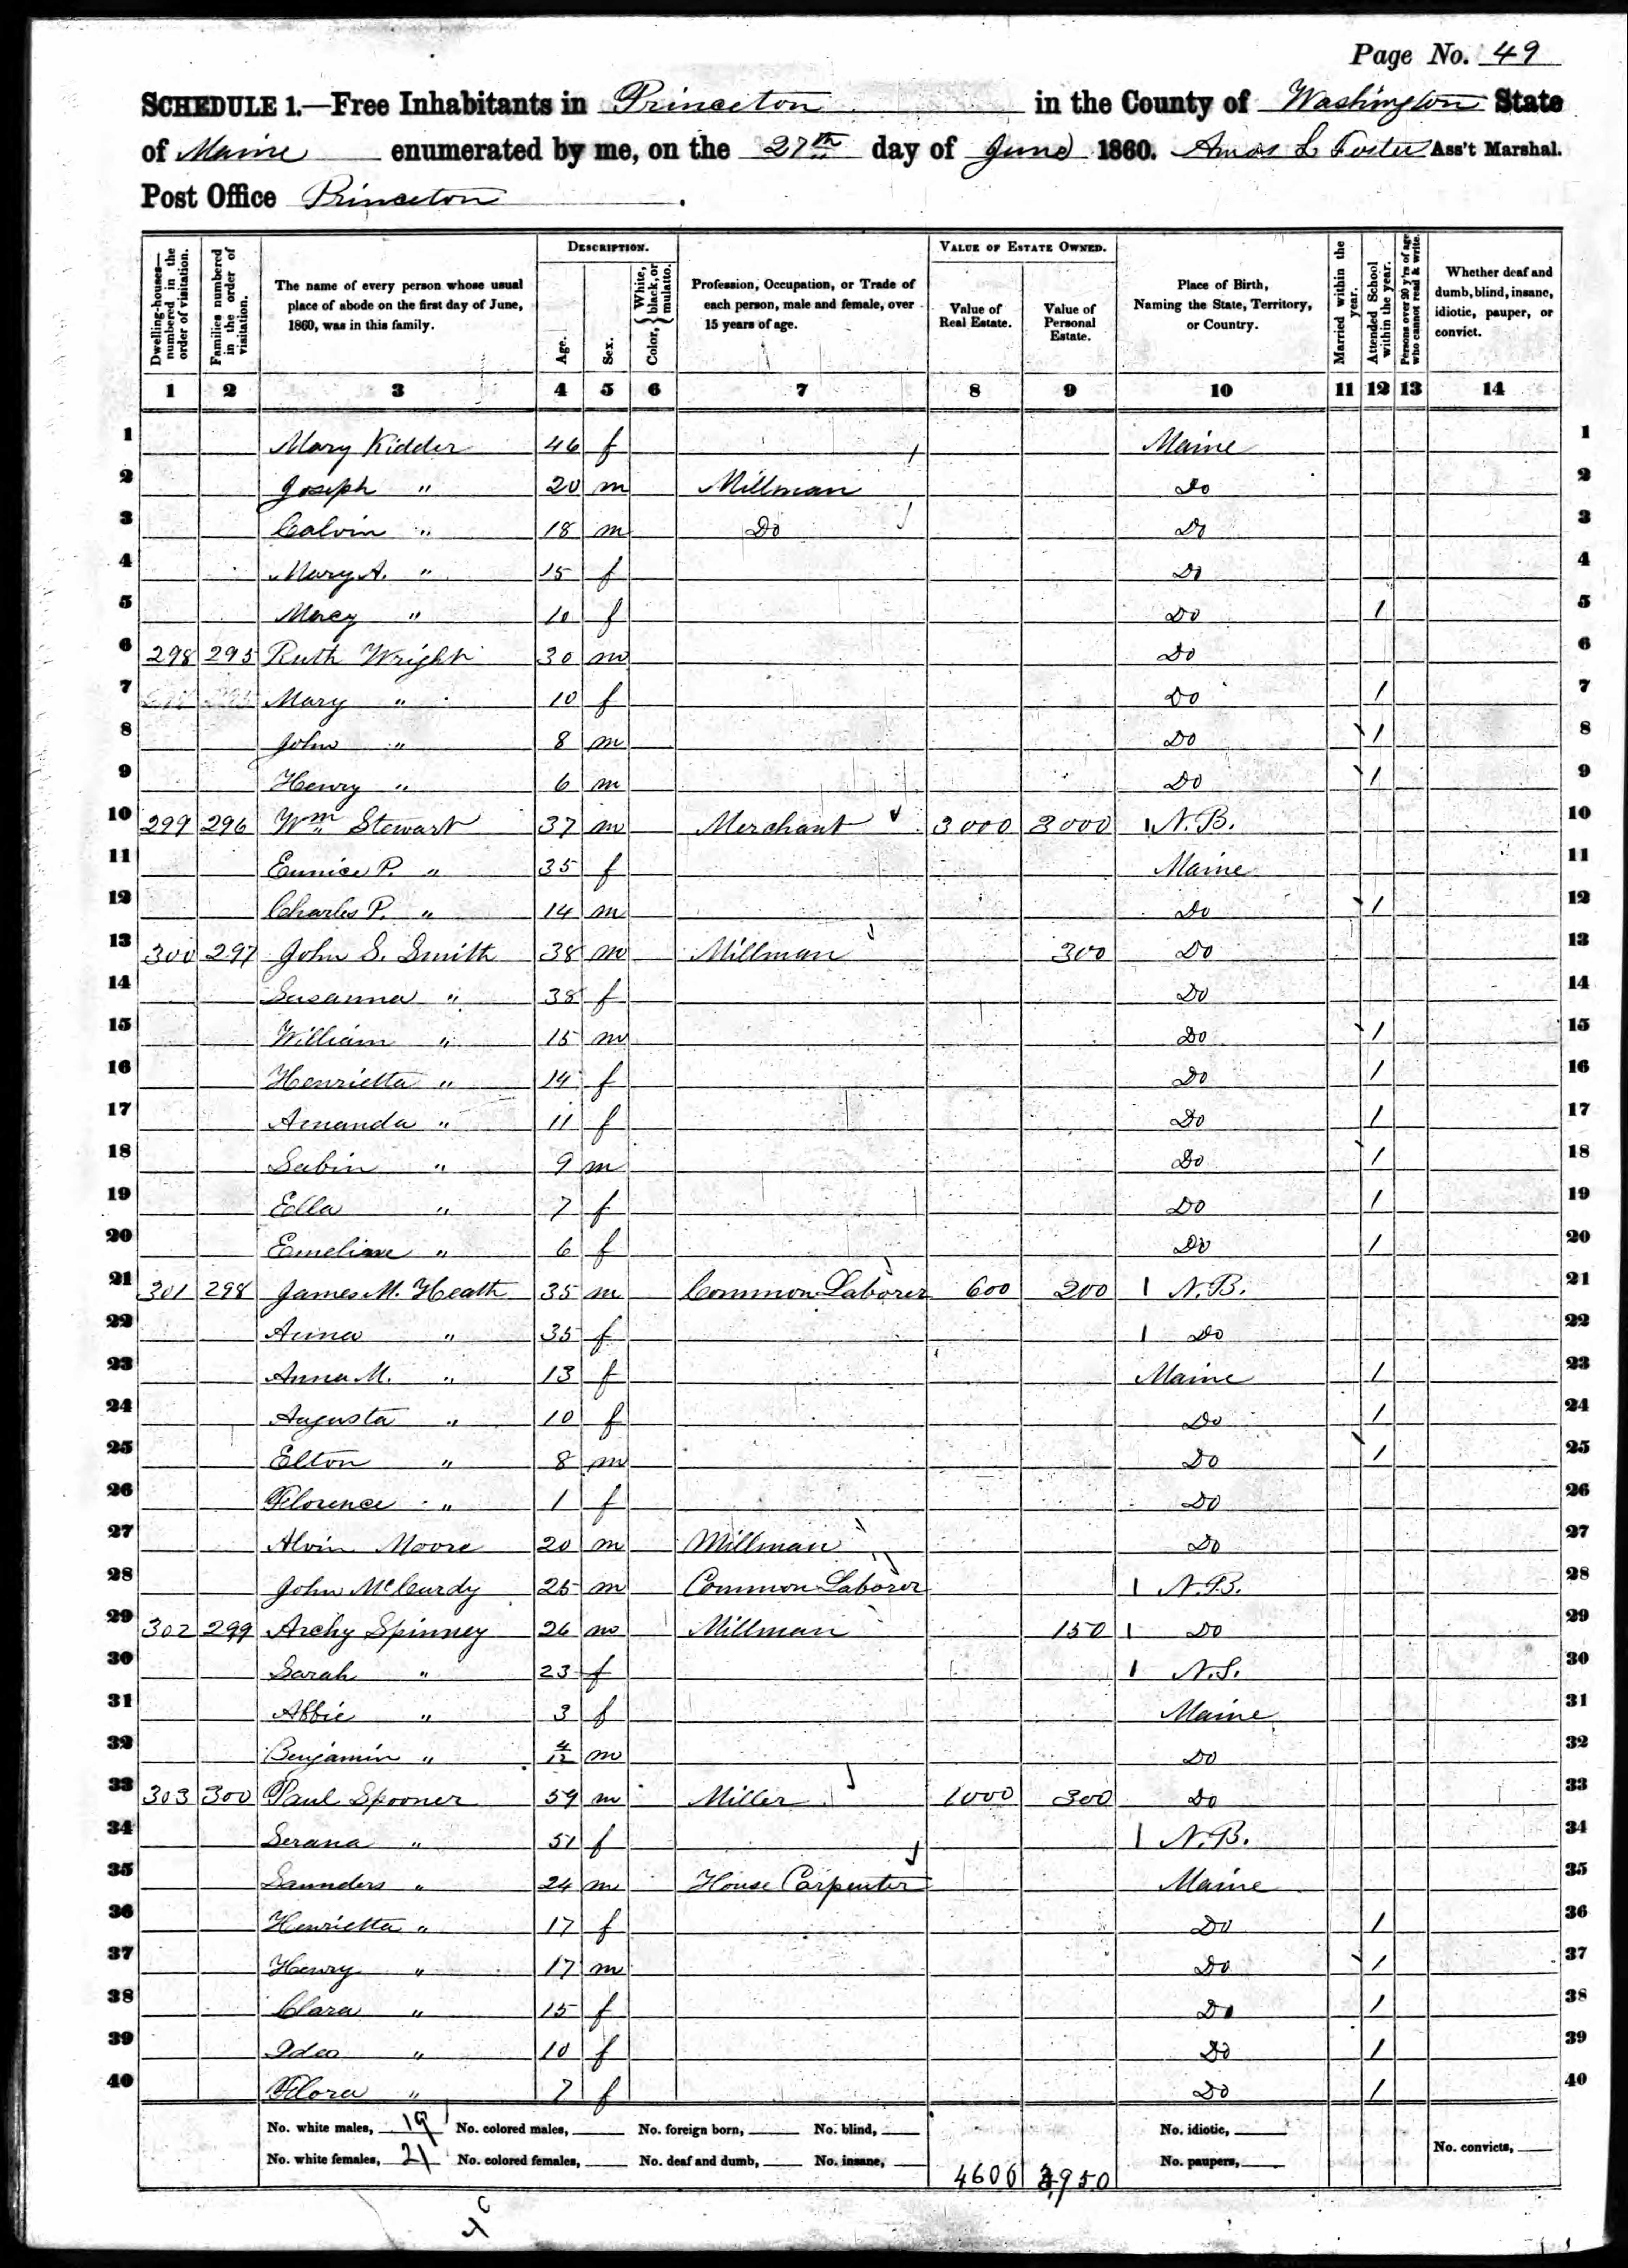 Page No. 49
SCHEDULE 1.—Free Inhabitants in Princeton in the County of Washington State
of Maine enumerated by me, on the 27th day of June 1860. Amos L Foster Ass't Marshal.
Post Office Princeton.
Dwelling-houses—numbered in the order of visitation. Families numbered in the order of visitation. The name of every person whose usual place of abode on the first day of June, 1860, was in this family. DESCRIPTION. Age. Sex. Color, { White, black, or mulatto. Profession, Occupation, or Trade of each person, male and female, over 15 years of age. VALUE OF ESTATE OWNED. Value of Real Estate. Value of Personal Estate. Place of Birth, Naming the State, Territory, or Country. Married within the year. Attended School within the year. Persons over 20 y'rs of age who cannot read & write. Whether deaf and dumb, blind, insane, idiotic, pauper, or convict.
1 2 3 4 5 6 7 8 9 10 11 12 13 14
1 Mary Kidder 46 f Maine 1
2 Joseph " 20 m Millman Do 2
3 Calvin " 18 m Do Do 3
4 Mary A. " 15 f Do 4
5 Mercy " 10 f Do / 5
6 298 295 Ruth Wright 30 m Do 6
7 Mary " 10 f Do / 7
8 John " 8 m Do / 8
9 Henry " 6 m Do / 9
10 299 296 Wm Stewart 37 m Merchant 3000 3000 N.B. 10
11 Eunice P. " 35 f Maine 11
12 Charles P. " 14 m Do / 12
13 300 297 John S. Smith 38 m Millman 300 Do 13
14 Susanna " 38 f Do 14
15 William " 15 m Do / 15
16 Henrietta " 14 f Do / 16
17 Amanda " 11 f Do / 17
18 Sabin " 9 m Do / 18
19 Ella " 7 f Do / 19
20 Emeline " 6 f Do / 20
21 301 298 James M. Heath 35 m Common Laborer 600 200 N.B. 21
22 Anna " 35 f Do 22
23 Anna M. " 13 f Maine / 23
24 Augusta " 10 f Do / 24
25 Elton " 8 m Do / 25
26 Florence " 1 f Do 26
27 Alvin Moore 20 m Millman Do 27
28 John McCurdy 25 m Common Laborer N.B. 28
29 302 299 Archy Spinney 26 m Millman 150 Do 29
30 Sarah " 23 f N.S. 30
31 Abbie " 3 f Maine 31
32 Benjamin " 4/12 m Do 32
33 303 300 Paul Spooner 59 m Miller 1000 300 Do 33
34 Serana " 51 f N.B. 34
35 Saunders " 24 m House Carpenter Maine 35
36 Henrietta " 17 f Do / 36
37 Henry " 17 m Do / 37
38 Clara " 15 f Do / 38
39 Ida " 10 f Do / 39
40 Flora " 7 f Do / 40
No. white males, 19 No. colored males, No. foreign born, No. blind, No. idiotic,
No. white females, 21 No. colored females, No. deaf and dumb, No. insane, 4600 3950 No. paupers, No. convicts,
40